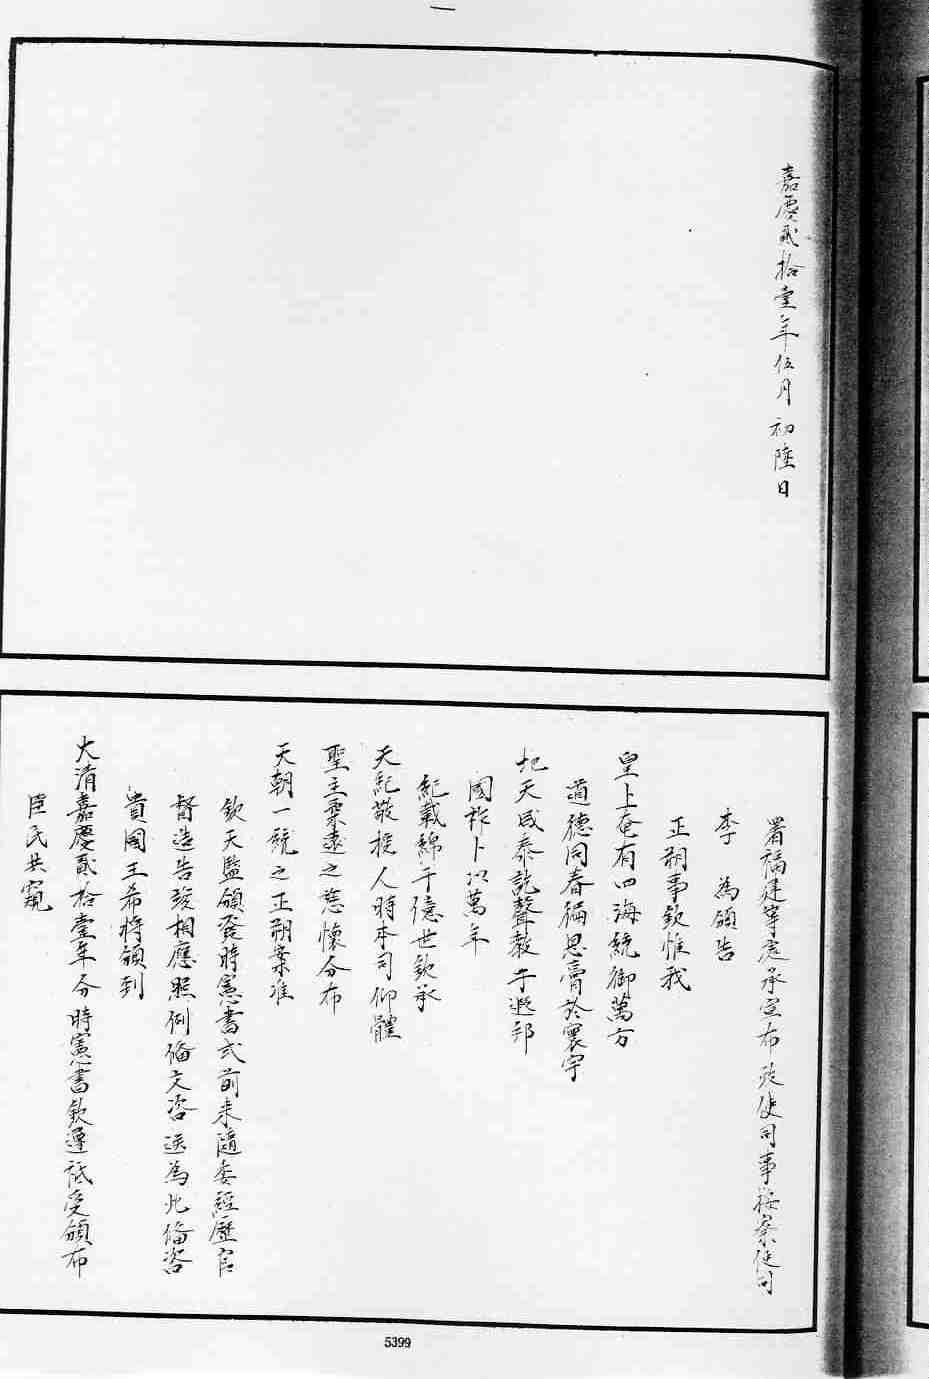 嘉慶貳拾壹年伍月初陸日
署福建等處承宣布政使司事按察使司
李　為頒告
正朔事欽惟我
皇上奄有四海統御萬方
道德同春徧恩膏於寰宇
地天成泰訖聲敎于遐邦
國祚卜以萬年
紀載綿于億世欽承
天紀敬授人時本司仰體
聖主柔遠之慈懷分布
天朝一統之正朔案准
欽天監頒發時憲書式前來隨委經歷官
督造告竣相應照例俻文咨送為此俻咨
貴國王希將頒到
大清嘉慶貳拾壹年分時憲書欽遵祗受頒布
臣民共窺
5399